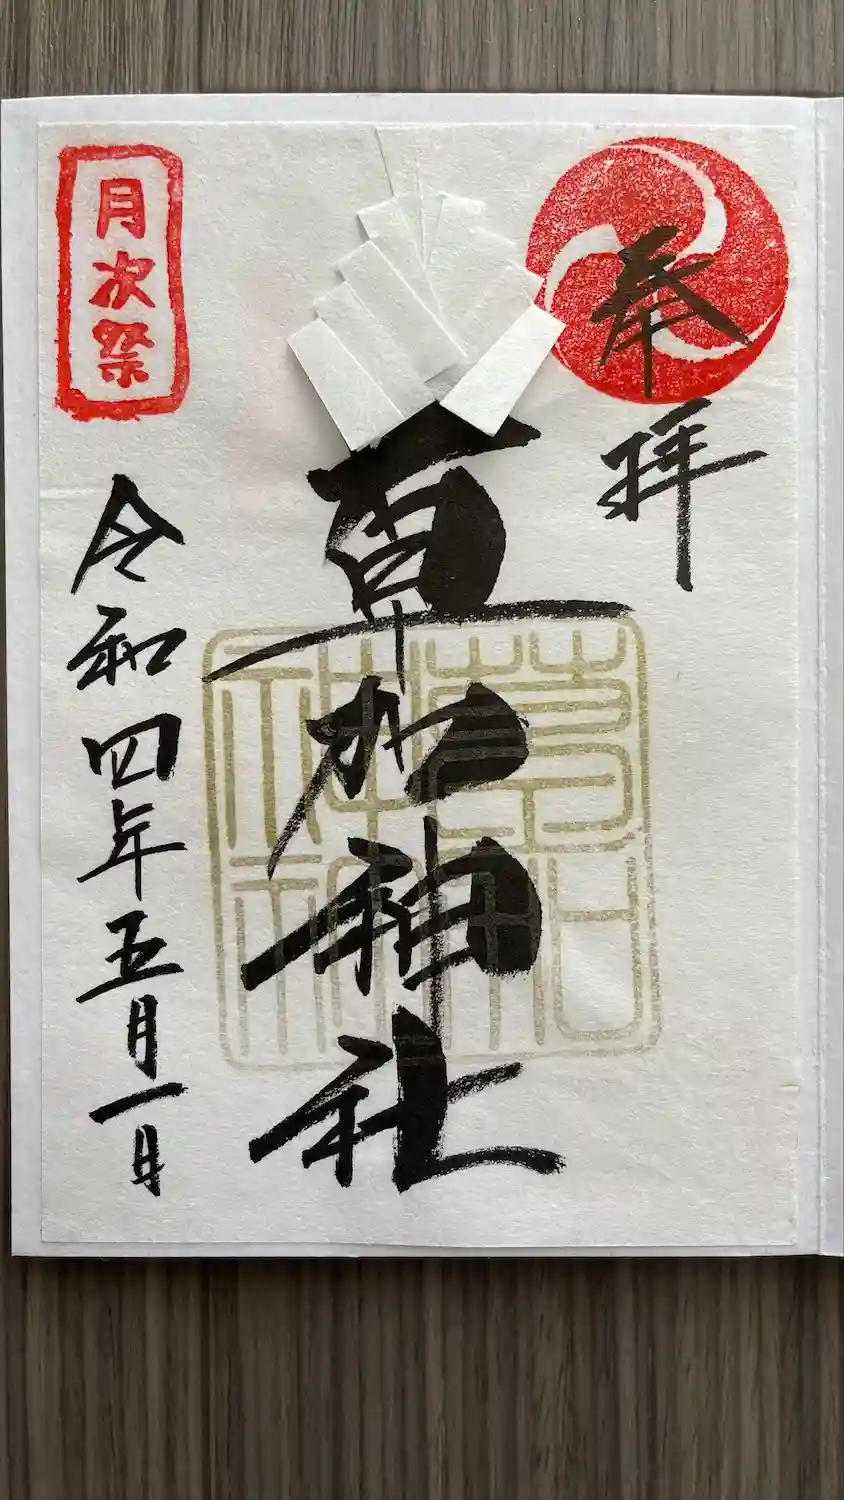 奉拝
草加神社
月次祭
令和四年五月一日